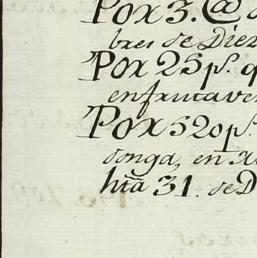 Por 3. @
bres de Diez
Por 25 ps. q
en fruta ver
Por 520 ps.
donga, en A
hta 31. de D